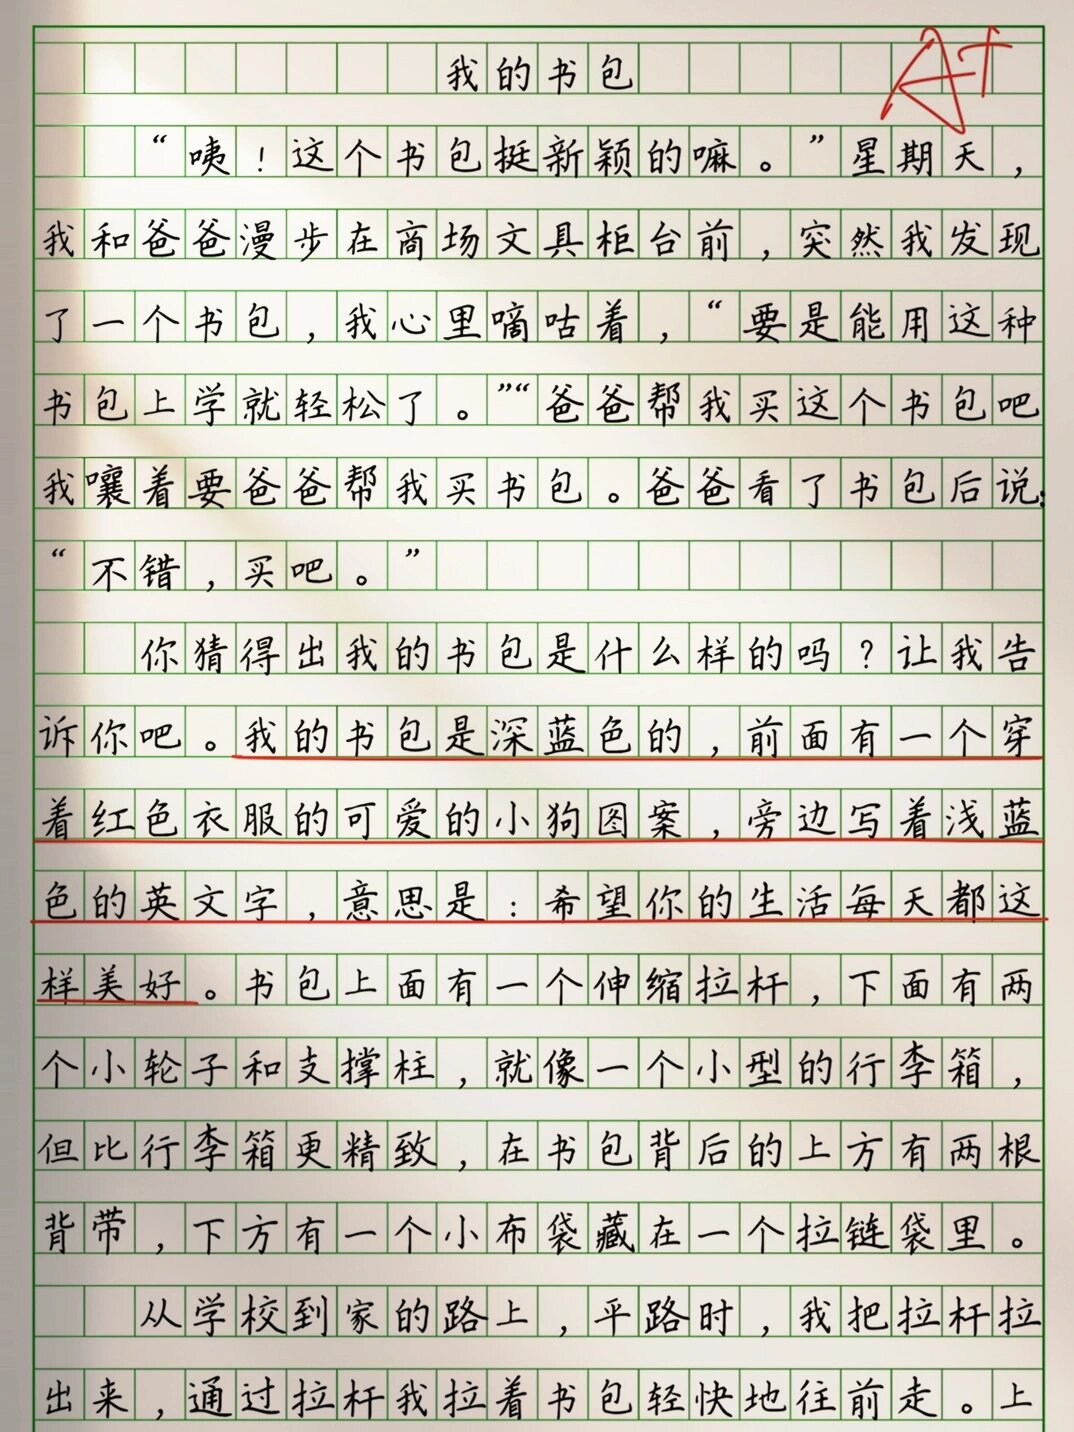 我的书包
A+
“咦！这个书包挺新颖的嘛。”星期天，
我和爸爸漫步在商场文具柜台前，突然我发现
了一个书包，我心里嘀咕着，“要是能用这种
书包上学就轻松了。”“爸爸帮我买这个书包吧
我嚷着要爸爸帮我买书包。爸爸看了书包后说：
“不错，买吧。”
你猜得出我的书包是什么样的吗？让我告
诉你吧。我的书包是深蓝色的，前面有一个穿
着红色衣服的可爱的小狗图案，旁边写着浅蓝
色的英文字，意思是：希望你的生活每天都这
样美好。书包上面有一个伸缩拉杆，下面有两
个小轮子和支撑柱，就像一个小型的行李箱，
但比行李箱更精致，在书包背后的上方有两根
背带，下方有一个小布袋藏在一个拉链袋里。
从学校到家的路上，平路时，我把拉杆拉
出来，通过拉杆我拉着书包轻快地往前走。上